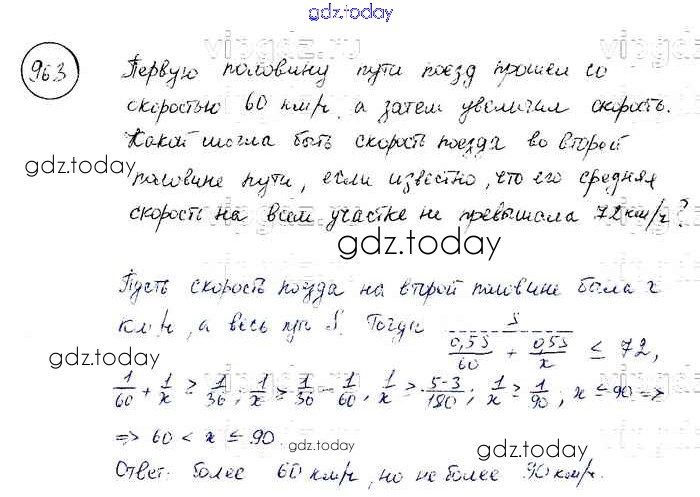 gdz.today
963 Первую половину пути поезд прошел со
скоростью 60 км/ч, а затем увеличил скорость.
Какой могла быть скорость поезда во второй
gdz.today
половине пути, если известно, что его средняя
скорость на всем участке не превышала 72 км/ч?
gdz.today
Пусть скорость поезда на второй половине была x
км/ч, а весь путь S. Тогда S / (0,5S/60 + 0,5S/x) ≤ 72,
gdz.today
1/60 + 1/x ≥ 1/36; 1/x ≥ 1/36 - 1/60, 1/x ≥ 5-3/180; 1/x ≥ 1/90, x ≤ 90 =>
=> 60 < x ≤ 90.
gdz.today
gdz.today
Ответ: более 60 км/ч, но не более 90 км/ч.